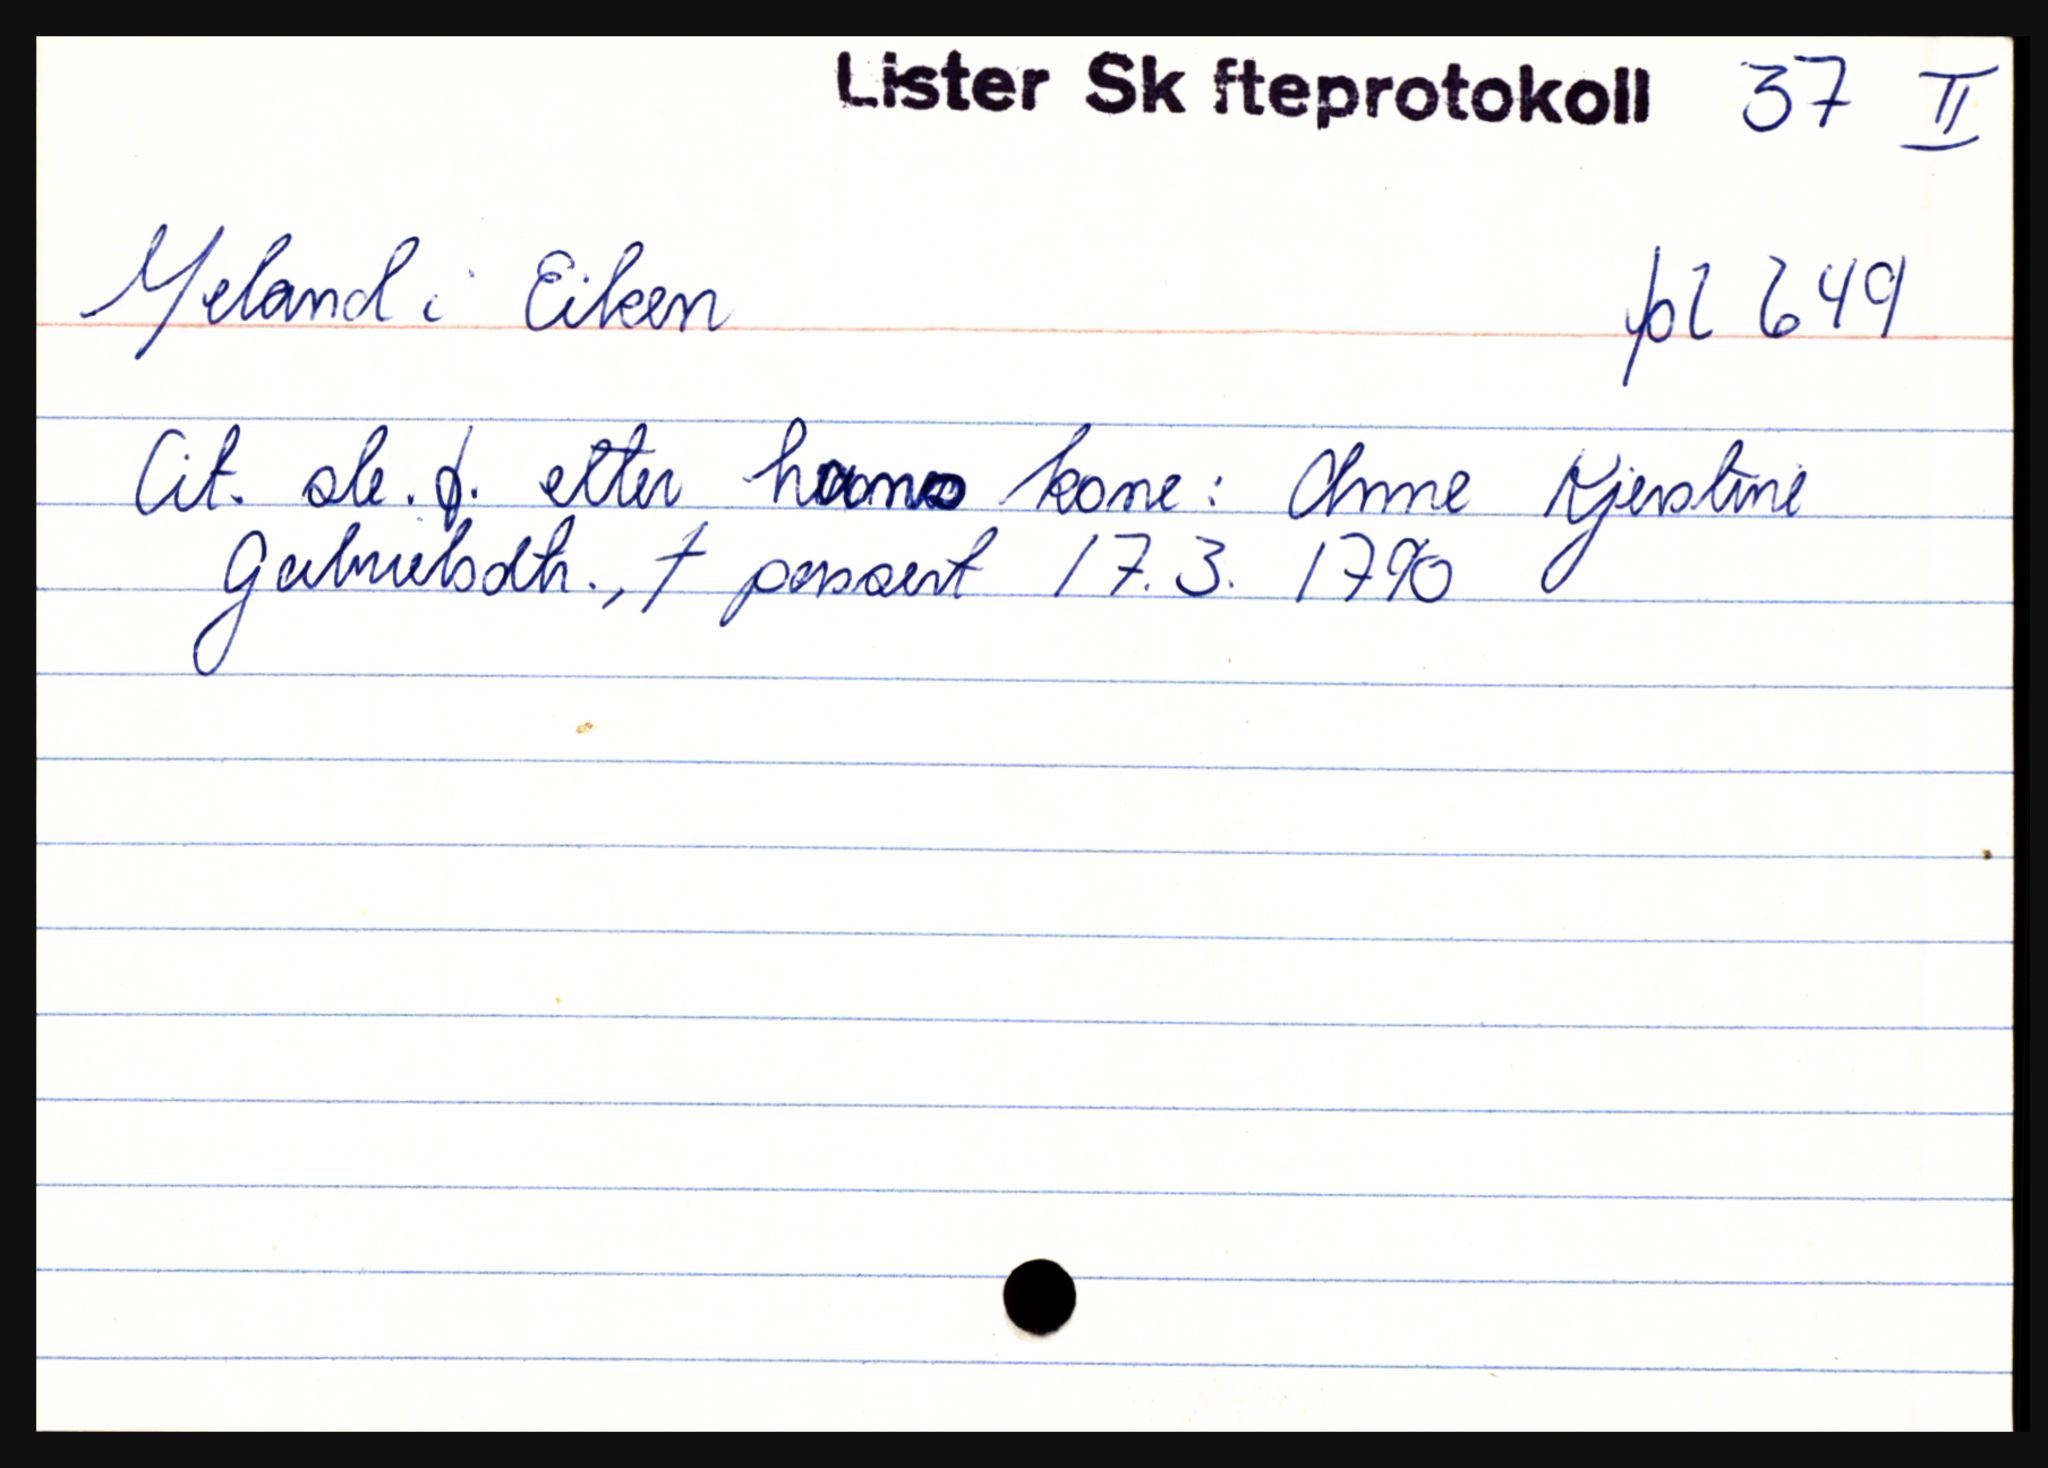 Lister Sk fteprotokoll 37 II
Meland i Eiken pl 649
Cit. sk. f. etter hans kone: Anne Kjerstine
Gabrielsdtr., † passert 17.3. 1790